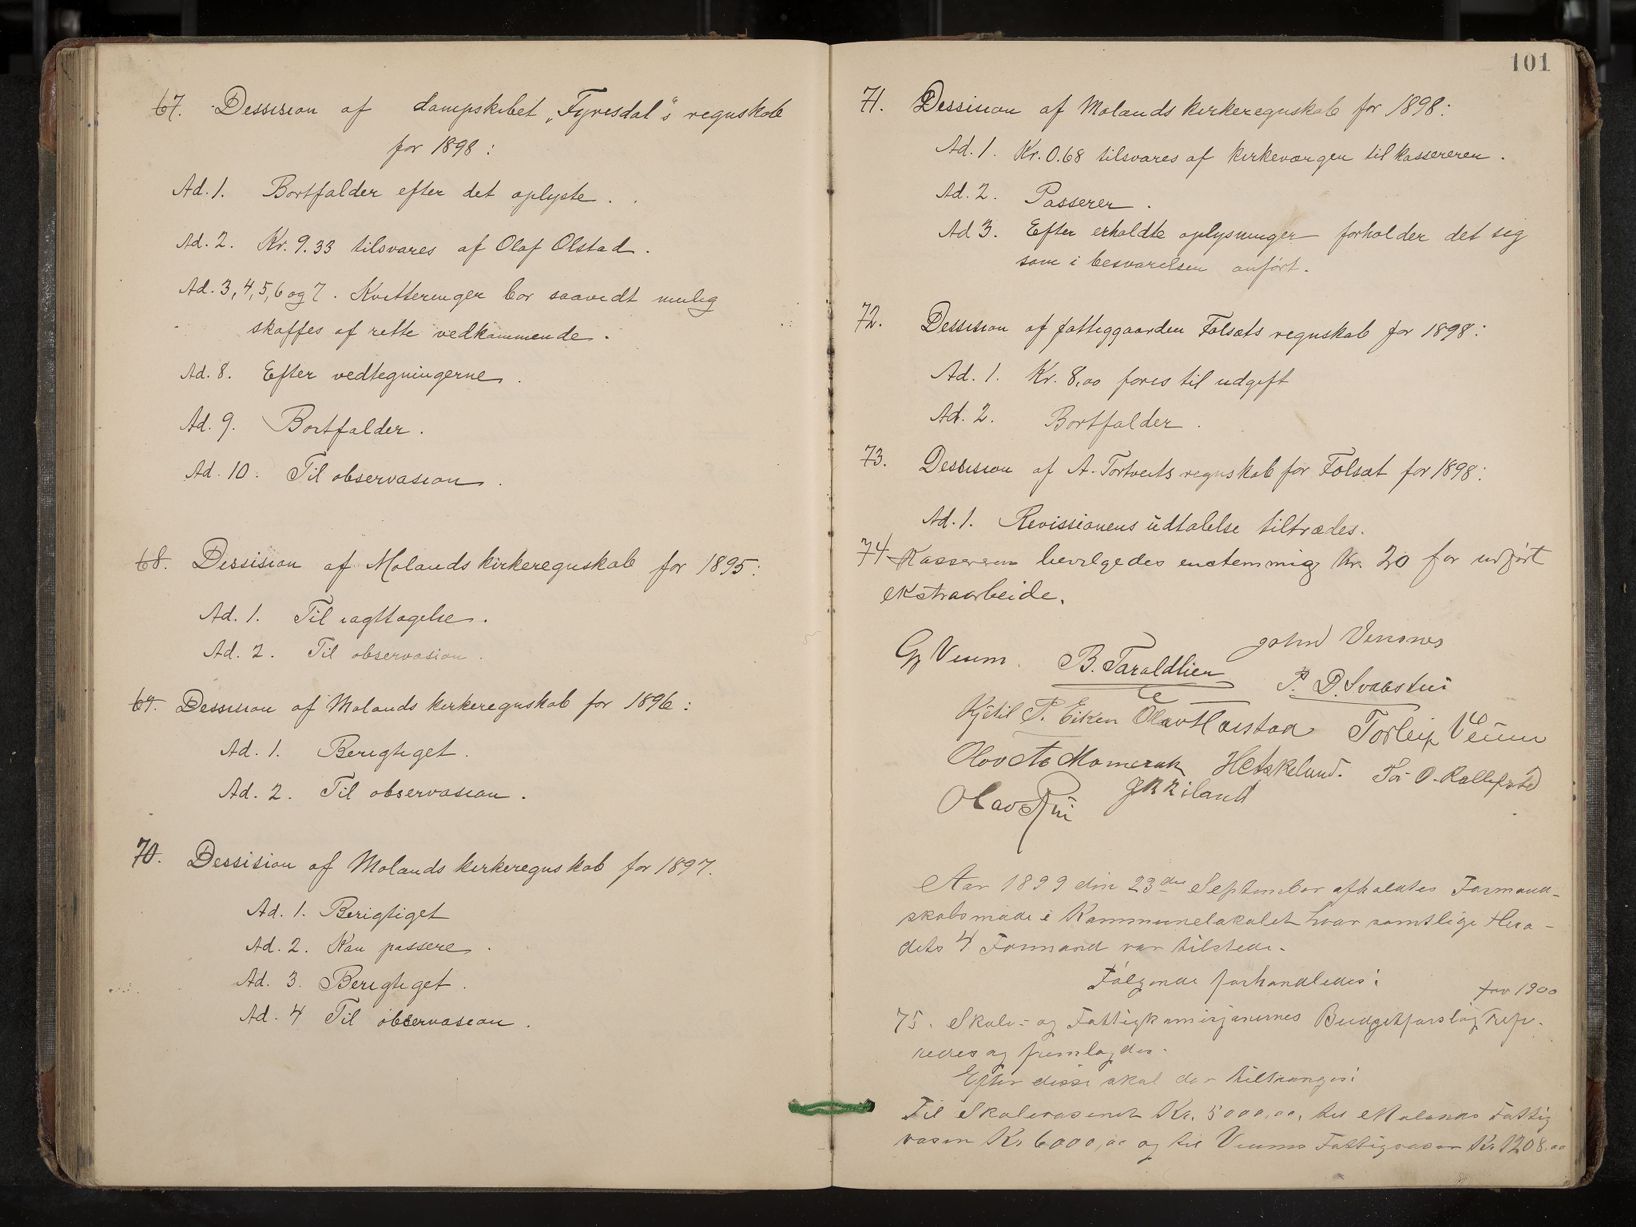 67. Dessision af dampskibet „Fyresdal"s regnskab
for 1898:
Ad. 1. Bortfalder efter det oplyste.
Ad. 2. Kr. 9.33 tilsvares af Olaf Olstad.
Ad. 3, 4, 5, 6 og 7. Kvitteringer bør saavidt mulig
skaffes af rette vedkommende.
Ad. 8. Efter vedtegningerne.
Ad. 9. Bortfalder.
Ad. 10. Til observasion.
68. Dessision af Molands kirkeregnskab for 1895:
Ad. 1. Til iagttagelse.
Ad. 2. Til observasion.
69. Dessision af Molands kirkeregnskab for 1896:
Ad. 1. Berigtiget.
Ad. 2. Til observasion.
70. Dessision af Molands kirkeregnskab for 1897.
Ad. 1. Berigtiget
Ad. 2. Kan passere.
Ad. 3. Berigtiget.
Ad. 4 Til observasion.
101
71. Dessision af Molands kirkeregnskab for 1898:
Ad. 1. Kr. 0.68 tilsvares af kirkeværgen til kassereren.
Ad. 2. Passerer.
Ad 3. Efter erholdte oplysninger forholder det sig
som i besvarelsen anført.
72. Dessision af fattiggaarden Folsæts regnskab for 1898:
Ad. 1. Kr. 8,00 føres til udgift
Ad. 2. Bortfalder.
73. Dessision af A. Tortveits regnskab for Folsæt for 1898:
Ad. 1. Revissionens udtalelse tiltrædes.
74 Kassereren bevilgedes enstemmig Kr. 20 for udført
ekstraarbeide.
G Veum. B. Taraldlien John Venenes
P. D. Svabstui
Kjetil P. Eiken Olav Haustad Torleif Veum
Olav Momrak H Askelund. Tor O.
Olav
Aar 1899 den 23de September afholdtes Formand-
skabsmøde i Kommunelokalet hvor samtlige Hera-
dets 4 Formænd var tilstede.
Følgende forhandledes:
for 1900
75. Skole- og Fattigkomisjonernes Budgetforslag refe-
redes og fremlagdes.
Efter disse skal der tiltrænges:
Til Skolevæsenet Kr. 5000,00, til Molands Fattig
væsen Kr 6000,00 og til Veums Fattigvæsen Kr 1208.00